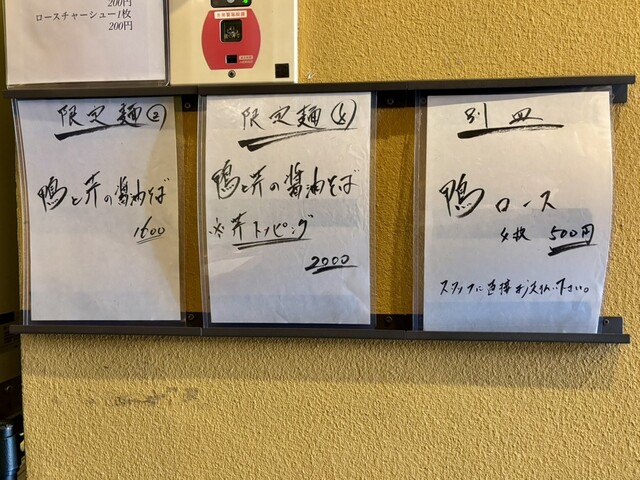 200円
ロースチャーシュー1枚
200円
限定麺②
鴨と芹の醤油そば
1600
限定麺
鴨と芹の醤油そば
※芹トッピング
2000
別皿
鴨ロース
4枚 500円
スタッフに直接お支払い下さい。